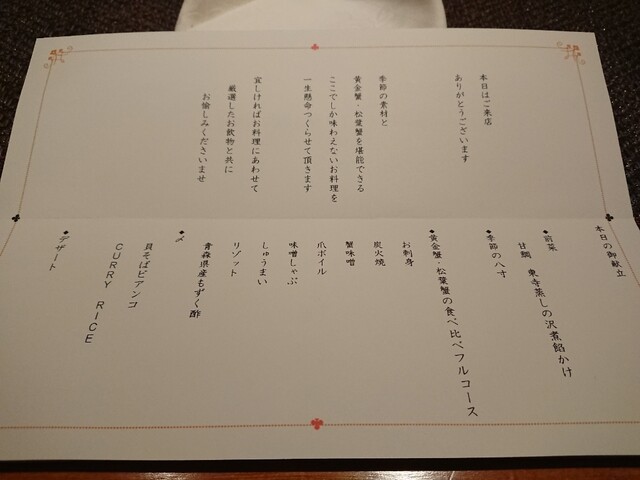 本日はご来店
ありがとうございます
季節の素材と
黄金蟹・松葉蟹を堪能できる
ここでしか味わえないお料理を
一生懸命つくらせて頂きます
宜しければお料理にあわせて
厳選したお飲物と共に
お愉しみくださいませ
本日の御献立
◆前菜
甘鯛 東寺蒸しの沢煮餡かけ
◆季節の八寸
◆黄金蟹・松葉蟹の食べ比べフルコース
お刺身
炭火焼
蟹味噌
爪ボイル
味噌しゃぶ
しゅうまい
リゾット
青森県産もずく酢
◆〆
貝そばビアンコ
CURRY RICE
◆デザート